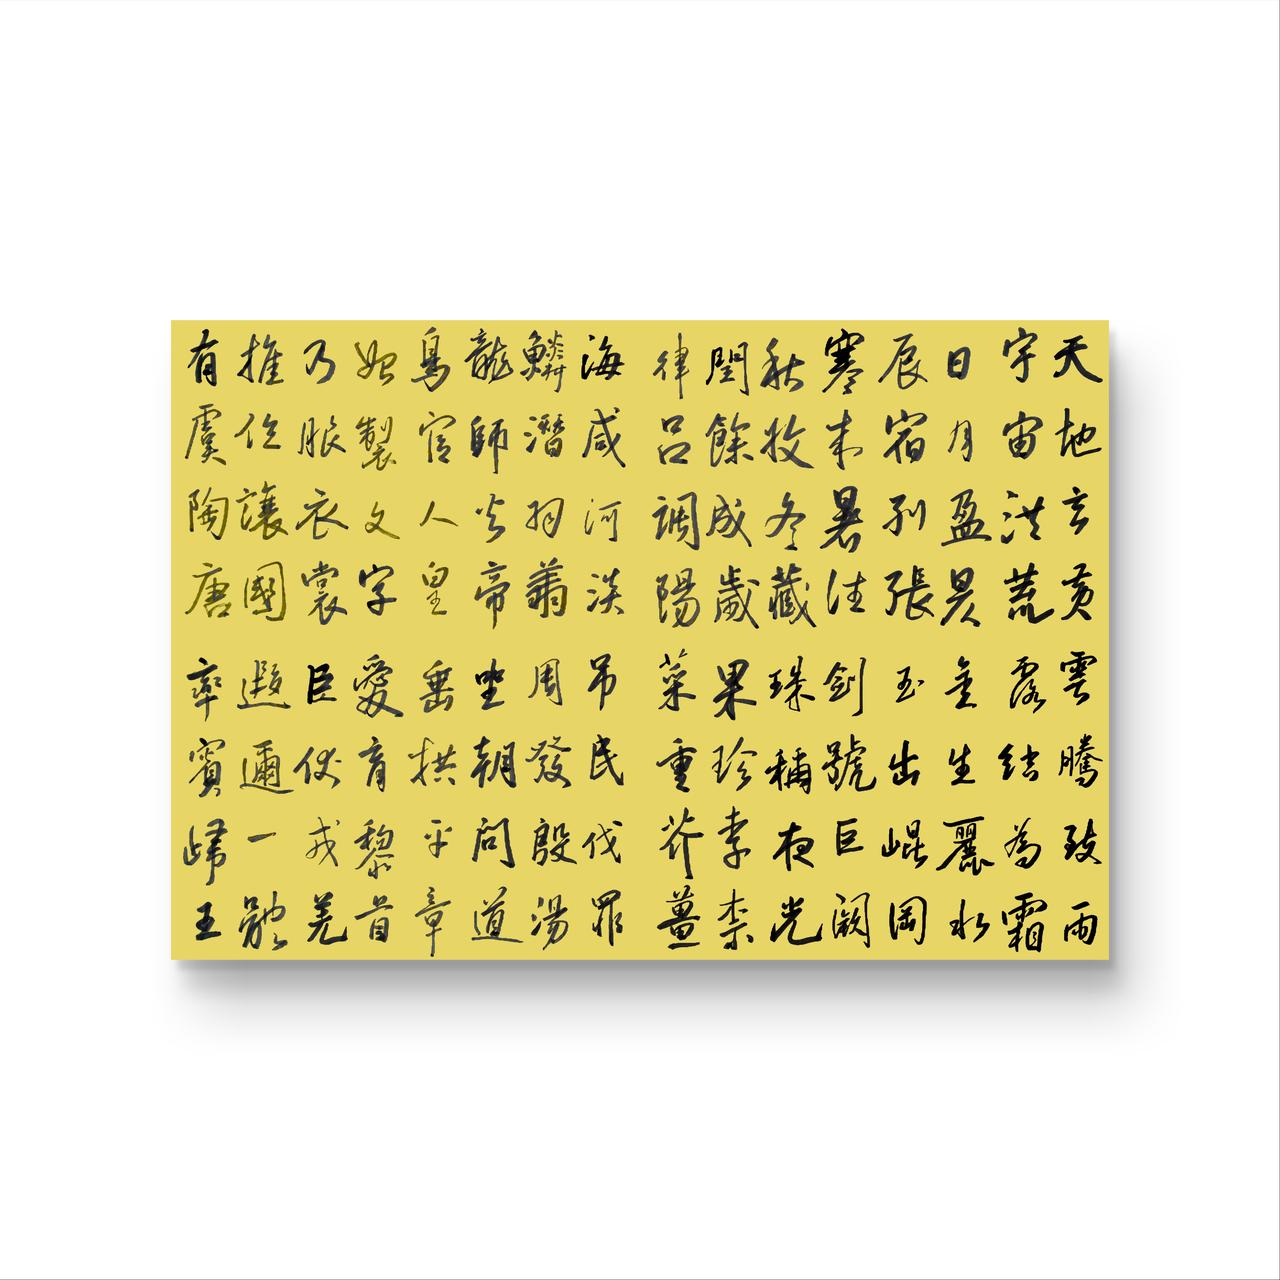 天地玄黃
宇宙洪荒
日月盈昃
辰宿列張
寒來暑往
秋收冬藏
閏餘成歲
律呂調陽
雲騰致雨
露結為霜
金生麗水
玉出崐岡
劍號巨闕
珠稱夜光
果珍李柰
菜重芥薑
海咸河淡
鱗潛羽翔
龍師火帝
鳥官人皇
始製文字
乃服衣裳
推位讓國
有虞陶唐
吊民伐罪
周發殷湯
坐朝問道
垂拱平章
愛育黎首
臣伏戎羌
遐邇一體
率賓歸王